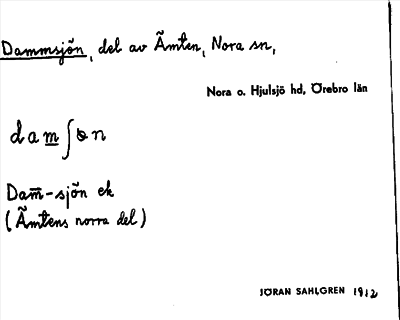 Dammsjön, del av Ämten, Nora sn,
Nora o. Hjulsjö hd, Örebro län
dam̲ʃɵn
Dam̅-sjön ek
(Ämtens norra del)
JÖRAN SAHLGREN 1912